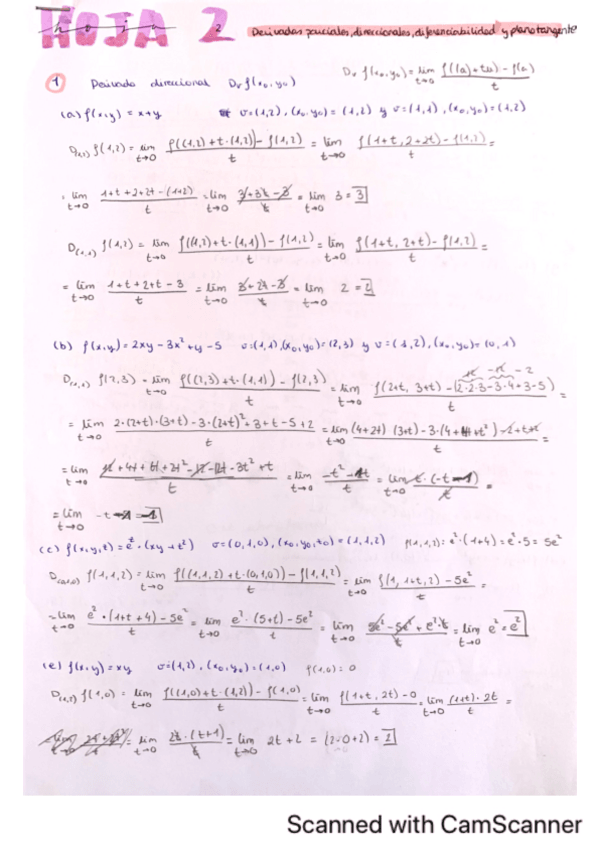 HOJA 2
hoja 2 Derivadas parciales, direccionales, diferenciabilidad y plano tangente
① Derivada direccional Dᵥ f(x₀,y₀) Dᵥ f(x₀,y₀) = lim t→0 (f((a)+tv) - f(a))/t
(a) f(x,y) = x+y v=(1,2), (x₀,y₀) = (1,2) y v=(1,1), (x₀,y₀)=(1,2)
D(1,2) f(1,2) = lim t→0 (f((1,2)+t·(1,2)) - f(1,2))/t = lim t→0 (f(1+t, 2+2t) - f(1,2))/t =
= lim t→0 (1+t+2+2t-(1+2))/t = lim t→0 (3+3t-3)/t = lim t→0 3 = 3
D(1,1) f(1,2) = lim t→0 (f((1,2)+t·(1,1)) - f(1,2))/t = lim t→0 (f(1+t, 2+t) - f(1,2))/t =
= lim t→0 (1+t+2+t-3)/t = lim t→0 (3+2t-3)/t = lim t→0 2 = 2
(b) f(x,y) = 2xy-3x²+y-5 v=(1,1), (x₀,y₀)=(2,3) y v=(1,2), (x₀,y₀)=(0,1)
D(1,1) f(2,3) = lim t→0 (f((2,3)+t·(1,1)) - f(2,3))/t = lim t→0 (f(2+t, 3+t) - (2·2·3-3·4+3-5))/t =
= lim t→0 (2·(2+t)·(3+t)-3·(2+t)²+3+t-5+2)/t = lim t→0 ((4+2t)·(3+t)-3·(4+4t+t²)-2+t+2)/t =
= lim t→0 = lim t→0 = lim t→0 =
= lim t→0
(c) f(x,y,t) = eᵗ·(xy+t²) v=(0,1,0), (x₀,y₀,t₀) = (1,1,2) f(1,1,2) = e²·(1+4) = e²·5 = 5e²
D(0,1,0) f(1,1,2) = lim t→0 (f((1,1,2)+t·(0,1,0)) - f(1,1,2))/t = lim t→0 (f(1, 1+t, 2) - 5e²)/t =
= lim t→0 (e²·(1+t+4) - 5e²)/t = lim t→0 (e²·(5+t) - 5e²)/t = lim t→0 (5e²-5e²+e²·t)/t = lim t→0 e² = e²
(e) f(x,y) = xy v=(1,2), (x₀,y₀) = (1,0) f(1,0) = 0
D(1,2) f(1,0) = lim t→0 (f((1,0)+t·(1,2)) - f(1,0))/t = lim t→0 (f(1+t, 2t) - 0)/t = lim t→0 ((1+t)·2t)/t =
= lim t→0 (2t·(t+1))/t = lim t→0 2t+2 = (2·0+2) = 2
Scanned with CamScanner